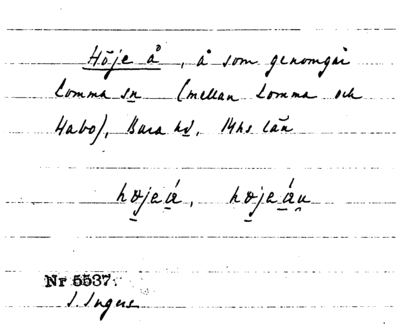 Höje å, å som genomgår
Lomma sn (mellan Lomma och
Habo), Bara hd, Mhs län
höjeá, höjeáu
Nr 5537.
I. Ingers